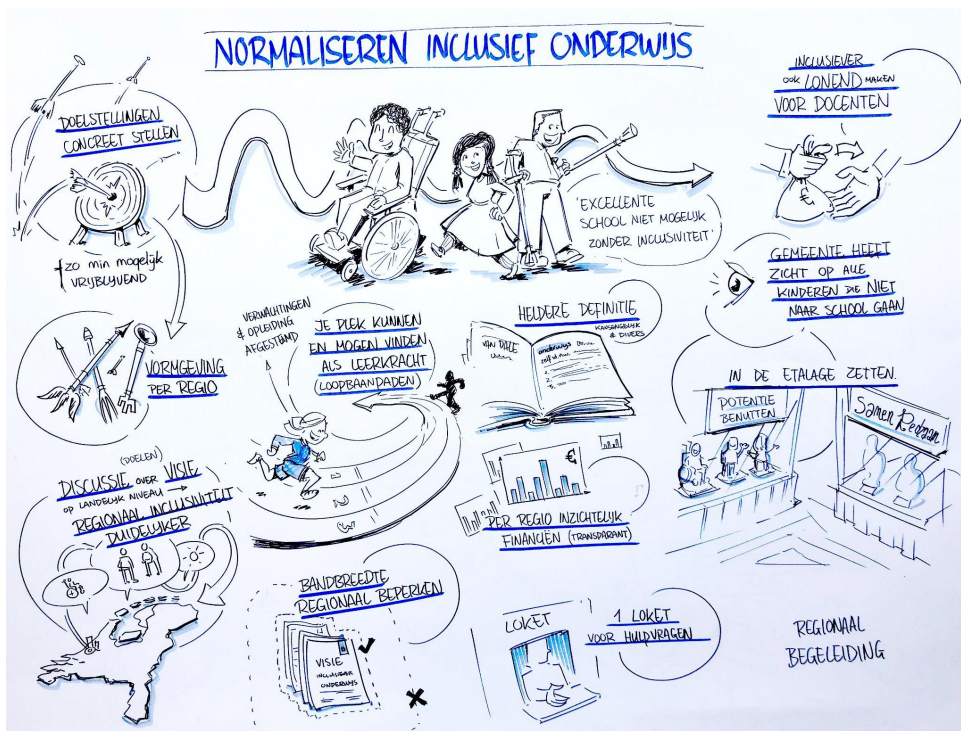 NORMALISEREN INCLUSIEF ONDERWIJS
DOELSTELLINGEN
CONCREET STELLEN
zo min mogelijk
VRIJBLIJVEND
VORMGEVING
PER REGIO
(DOELEN)
DISCUSSIE OVER VISIE
OP LANDELIJK NIVEAU
REGIONAAL INCLUSIVITEIT
DUIDELIJKER
'EXCELLENTE
SCHOOL NIET MOGELIJK
ZONDER INCLUSIVITEIT'
VERWACHTINGEN
& OPLEIDING
AFGESTEMD
JE PLEK KUNNEN
EN MOGEN VINDEN
ALS LEERKRACHT
(LOOPBAANPADEN)
HELDERE DEFINITIE
KANSENGELIJK
& DIVERS
VAN DALE
onderwijs
€
PER REGIO INZICHTELIJK
FINANCIËN (TRANSPARANT)
BANDBREEDTE
REGIONAAL BEPERKEN
VISIE
INCLUSIEVER
ONDERWIJS
LOKET
1 LOKET
VOOR HULPVRAGEN
INCLUSIEVER
OOK LONEND MAKEN
VOOR DOCENTEN
€
GEMEENTE HEEFT
ZICHT OP ALLE
KINDEREN DIE NIET
NAAR SCHOOL GAAN
IN DE ETALAGE ZETTEN
POTENTIE
BENUTTEN
Samen
REGIONAAL
BEGELEIDING